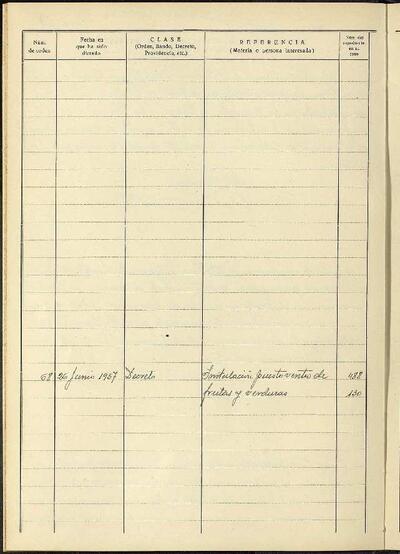 Núm. de orden
Fecha en que ha sido dictada
CLASE
(Orden, Bando, Decreto, Providencia, etc.)
REFERENCIA
(Materia o persona interesada)
68 26 Junio 1957 Decreto Instalación puesto venta de 488
frutas y verduras 130